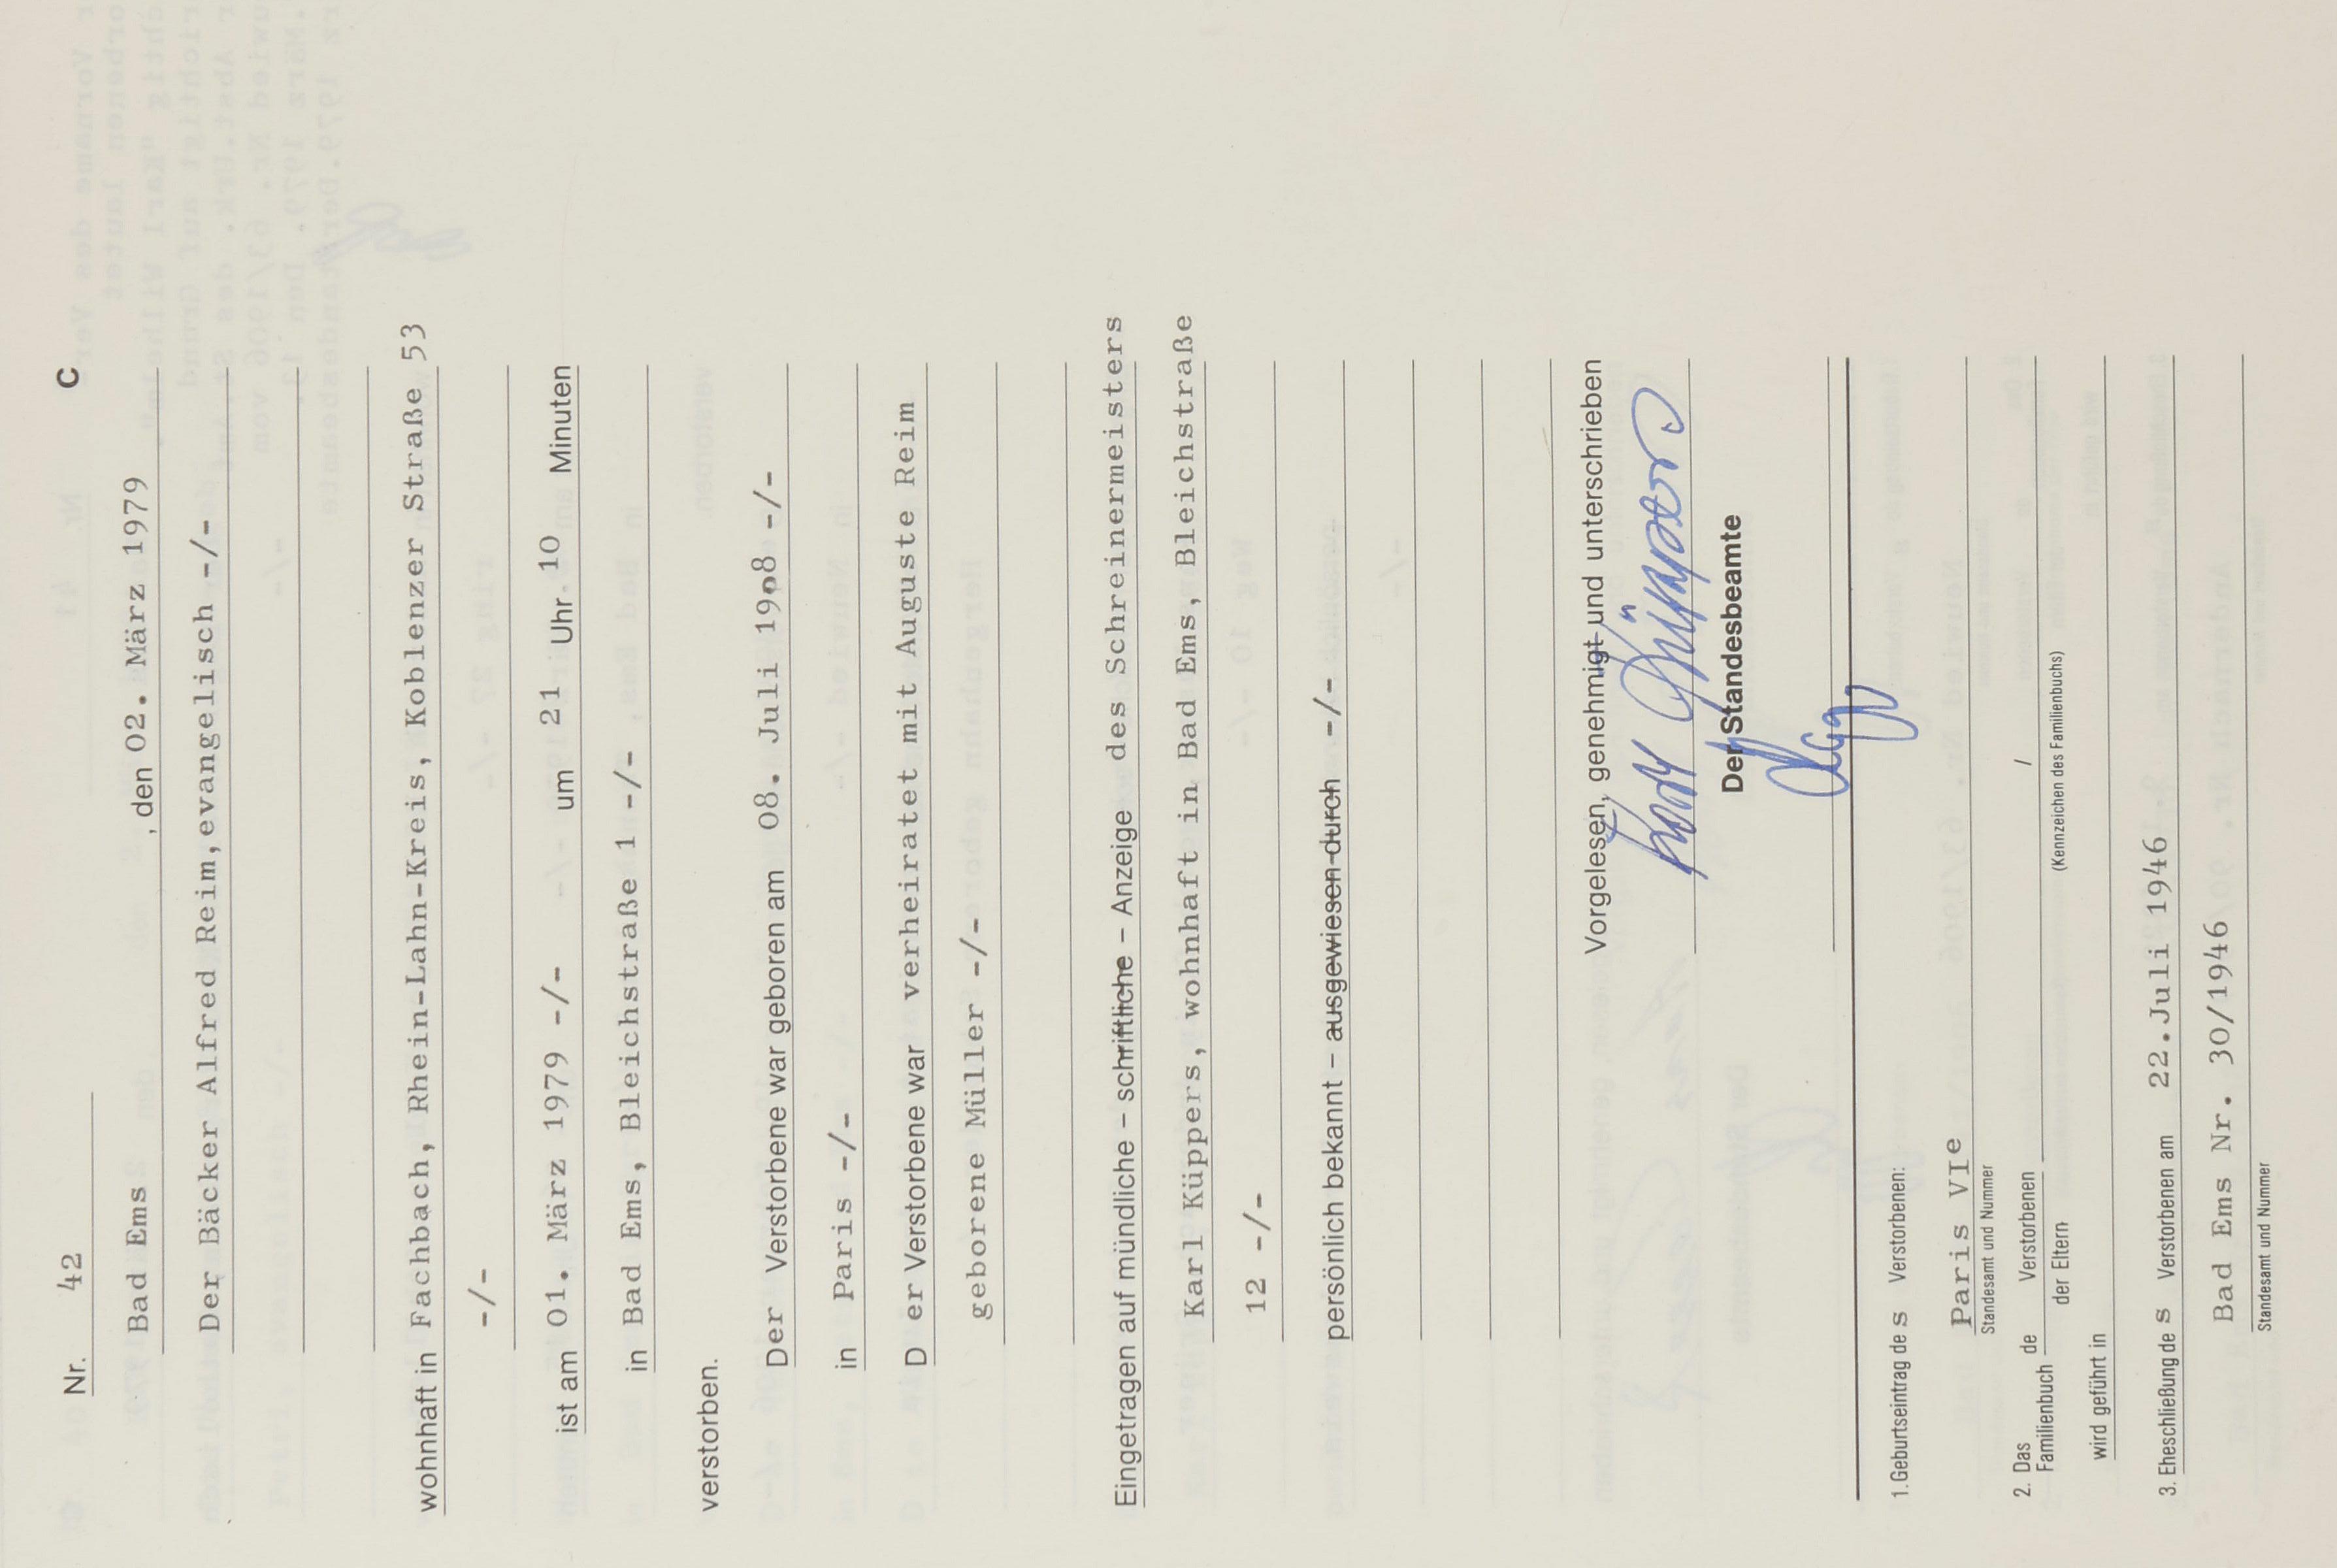 Nr. 42 C
Bad Ems , den 02. März 1979
Der Bäcker Alfred Reim, evangelisch -/-
wohnhaft in Fachbach, Rhein-Lahn-Kreis, Koblenzer Straße 53
-/-
ist am 01. März 1979 -/- um 21 Uhr 10 Minuten
in Bad Ems, Bleichstraße 1 -/-
verstorben.
Der Verstorbene war geboren am 08. Juli 1908 -/-
in Paris -/-
D er Verstorbene war verheiratet mit Auguste Reim
geborene Müller -/-
Eingetragen auf mündliche – schriftliche – Anzeige des Schreinermeisters
Karl Küppers, wohnhaft in Bad Ems, Bleichstraße
12 -/-
persönlich bekannt – ausgewiesen durch -/-
Vorgelesen, genehmigt und unterschrieben
Karl Küppers
Der Standesbeamte
1. Geburtseintrag des Verstorbenen:
Paris VIe
Standesamt und Nummer
2. Das Familienbuch de Verstorbenen /
der Eltern (Kennzeichen des Familienbuchs)
wird geführt in
3. Eheschließung des Verstorbenen am 22. Juli 1946
Bad Ems Nr. 30/1946
Standesamt und Nummer